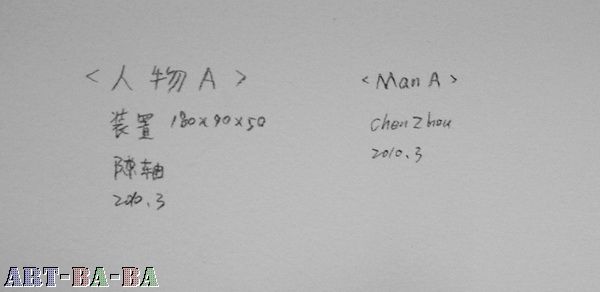 <人物A>
装置 180x90x50
陈轴
2010.3
<Man A>
Chen Zhou
2010.3
ART-BA-BA